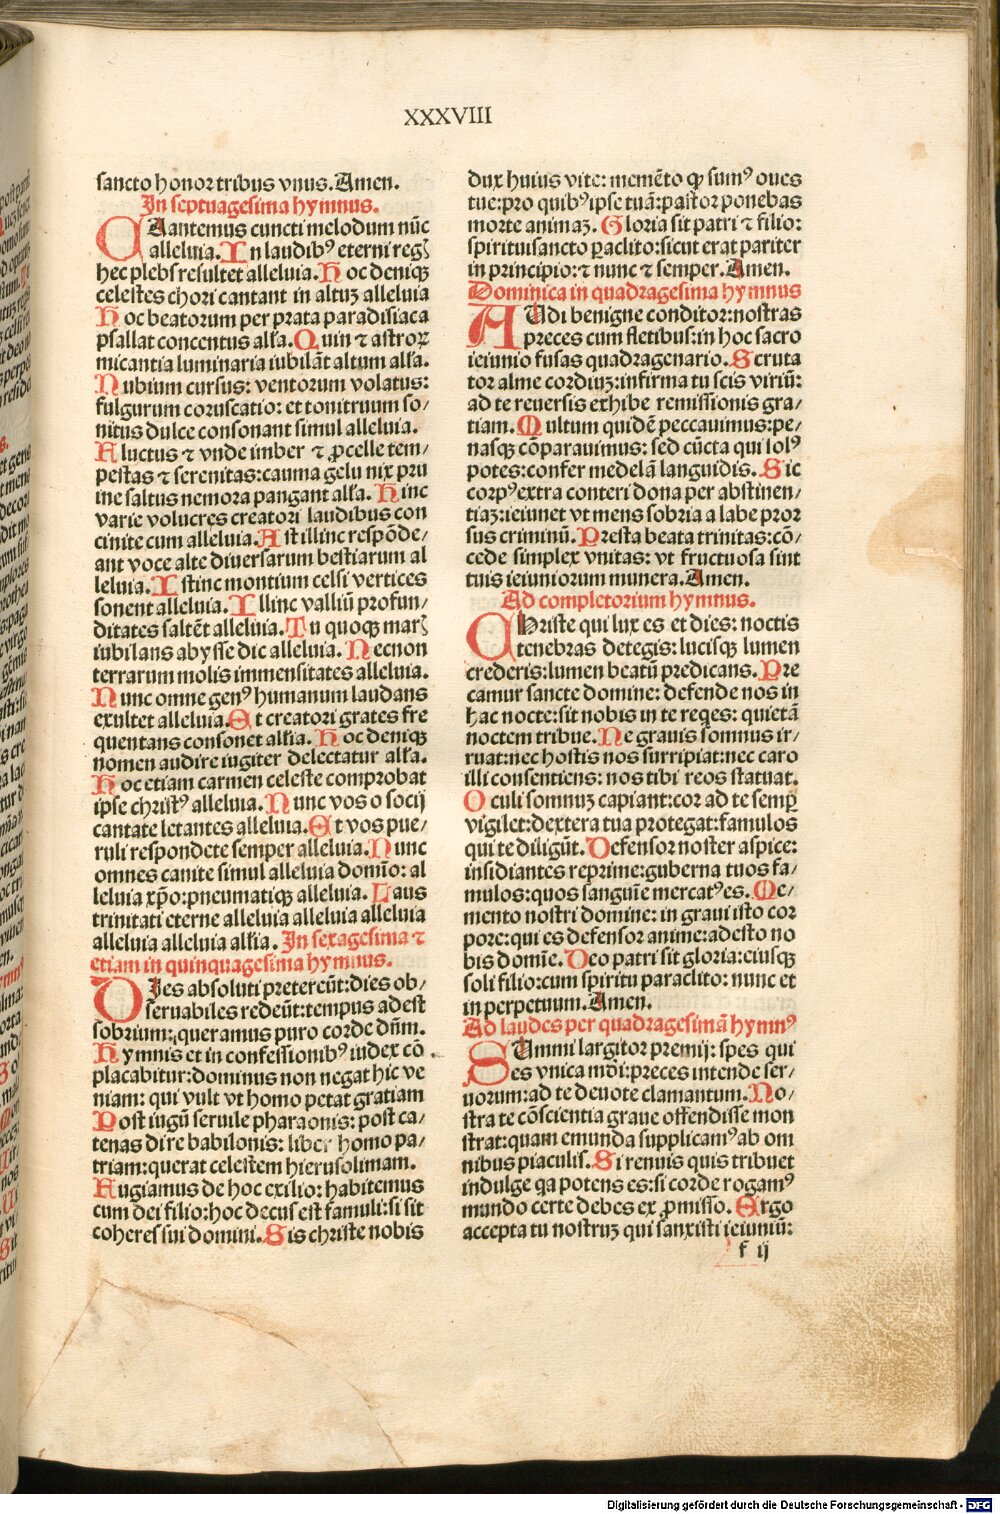 XXXVIII
sancto honor tribus vnus. Amen.
In septuagesima hymnus.
CAantemus cuncti melodum nūc
alleluia. In laudibꝰ eterni regꝭ
hec plebs resultet alleluia. Hoc deniqꝫ
celestes chori cantant in altuꝫ alleluia
Hoc beatorum per prata paradisiaca
psallat concentus alľa. Quin ⁊ astroꝝ
micantia luminaria iubilāt altum alľa.
Nubium cursus: ventorum volatus:
fulgurum coruscatio: et tonitruum so/
nitus dulce consonant simul alleluia.
Fluctus ⁊ vnde imber ⁊ ꝓcelle tem/
pestas ⁊ serenitas: cauma gelu nix pru
ine saltus nemora pangant alľa. Hinc
varie volucres creatori laudibus con
cinite cum alleluia. Ast illinc respōde/
ant voce alte diuersarum bestiarum al
leluia. Istinc montium celsi vertices
sonent alleluia. Illinc valliū profun/
ditates saltēt alleluia. Tu quoqꝫ marꝭ
iubilans abysse dic alleluia. Necnon
terrarum molis immensitates alleluia.
Nunc omne genꝰ humanum laudans
exultet alleluia. Et creatori grates fre
quentans consonet alľia. Hoc deniqꝫ
nomen audire iugiter delectatur alľa.
Hoc etiam carmen celeste comprobat
ipse christꝰ alleluia. Nunc vos o socij
cantate letantes alleluia. Et vos pue/
ruli respondete semper alleluia. Nunc
omnes canite simul alleluia domīo: al
leluia xp̄o: pneumatiqꝫ alleluia. Laus
trinitati eterne alleluia alleluia alleluia
alleluia alleluia alľia. In sexagesima ⁊
etiam in quinquagesima hymnus.
DIes absoluti pretereūt: dies ob/
seruabiles redeūt: tempus adest
sobrium: queramus puro corde dn̄m.
Hymnis et in confessionibꝰ iudex cō
placabitur: dominus non negat hic ve
niam: qui vult vt homo petat gratiam
Post iugū seruile pharaonis: post ca/
tenas dire babilonis: liber homo pa/
triam: querat celestem hierusolimam.
Fugiamus de hoc exilio: habitemus
cum dei filio: hoc decus est famuli: si sit
coheres sui domini. Sis christe nobis
dux huius vite: memēto ꝙ sumꝰ oues
tue: pro quibꝰ ipse tuā: pastor ponebas
morte animaꝫ. Gloria sit patri ⁊ filio:
spirituisancto ꝑaclito: sicut erat pariter
in principio: ⁊ nunc ⁊ semper. Amen.
Dominica in quadragesima hymnus
AUdi benigne conditor: nostras
preces cum fletibus: in hoc sacro
ieiunio fusas quadragenario. Scruta
tor alme cordiuꝫ: infirma tu scis viriū:
ad te reuersis exhibe remissionis gra/
tiam. Multum quidē peccauimus: pe/
nasqꝫ cōparauimus: sed cūcta qui solꝰ
potes: confer medelā languidis. Sic
corpꝰ extra conteri dona per abstinen/
tiaꝫ: ieiunet vt mens sobria a labe pror
sus criminū. Presta beata trinitas: cō/
cede simplex vnitas: vt fructuosa sint
tuis ieiuniorum munera. Amen.
Ad completorium hymnus.
CHriste qui lux es et dies: noctis
tenebras detegis: lucisqꝫ lumen
crederis: lumen beatū predicans. Pre
camur sancte domine: defende nos in
hac nocte: sit nobis in te reqes: quietā
noctem tribue. Ne grauis somnus ir/
ruat: nec hostis nos surripiat: nec caro
illi consentiens: nos tibi reos statuat.
Oculi somnuꝫ capiant: cor ad te semꝑ
vigilet: dextera tua protegat: famulos
qui te diligūt. Defensor noster aspice:
insidiantes reprime: guberna tuos fa/
mulos: quos sanguīe mercatꝰ es. Me/
mento nostri domine: in graui isto cor
pore: qui es defensor anime: adesto no
bis domīe. Deo patri sit gloria: eiusqꝫ
soli filio: cum spiritu paraclito: nunc et
in perpetuum. Amen.
Ad laudes per quadragesimā hymnꝰ
SUmmi largitor premij: spes qui
es vnica mūdi: preces intende ser/
uorum: ad te deuote clamantum. No/
stra te cōscientia graue offendisse mon
strat: quam emunda supplicamꝰ ab om
nibus piaculis. Si renuis quis tribuet
indulge qa potens es: si corde rogamꝰ
mundo certe debes ex ꝓmisso. Ergo
accepta tu nostruꝫ qui sanxisti ieiuniū:
f ij
Digitalisierung gefördert durch die Deutsche Forschungsgemeinschaft - DFG